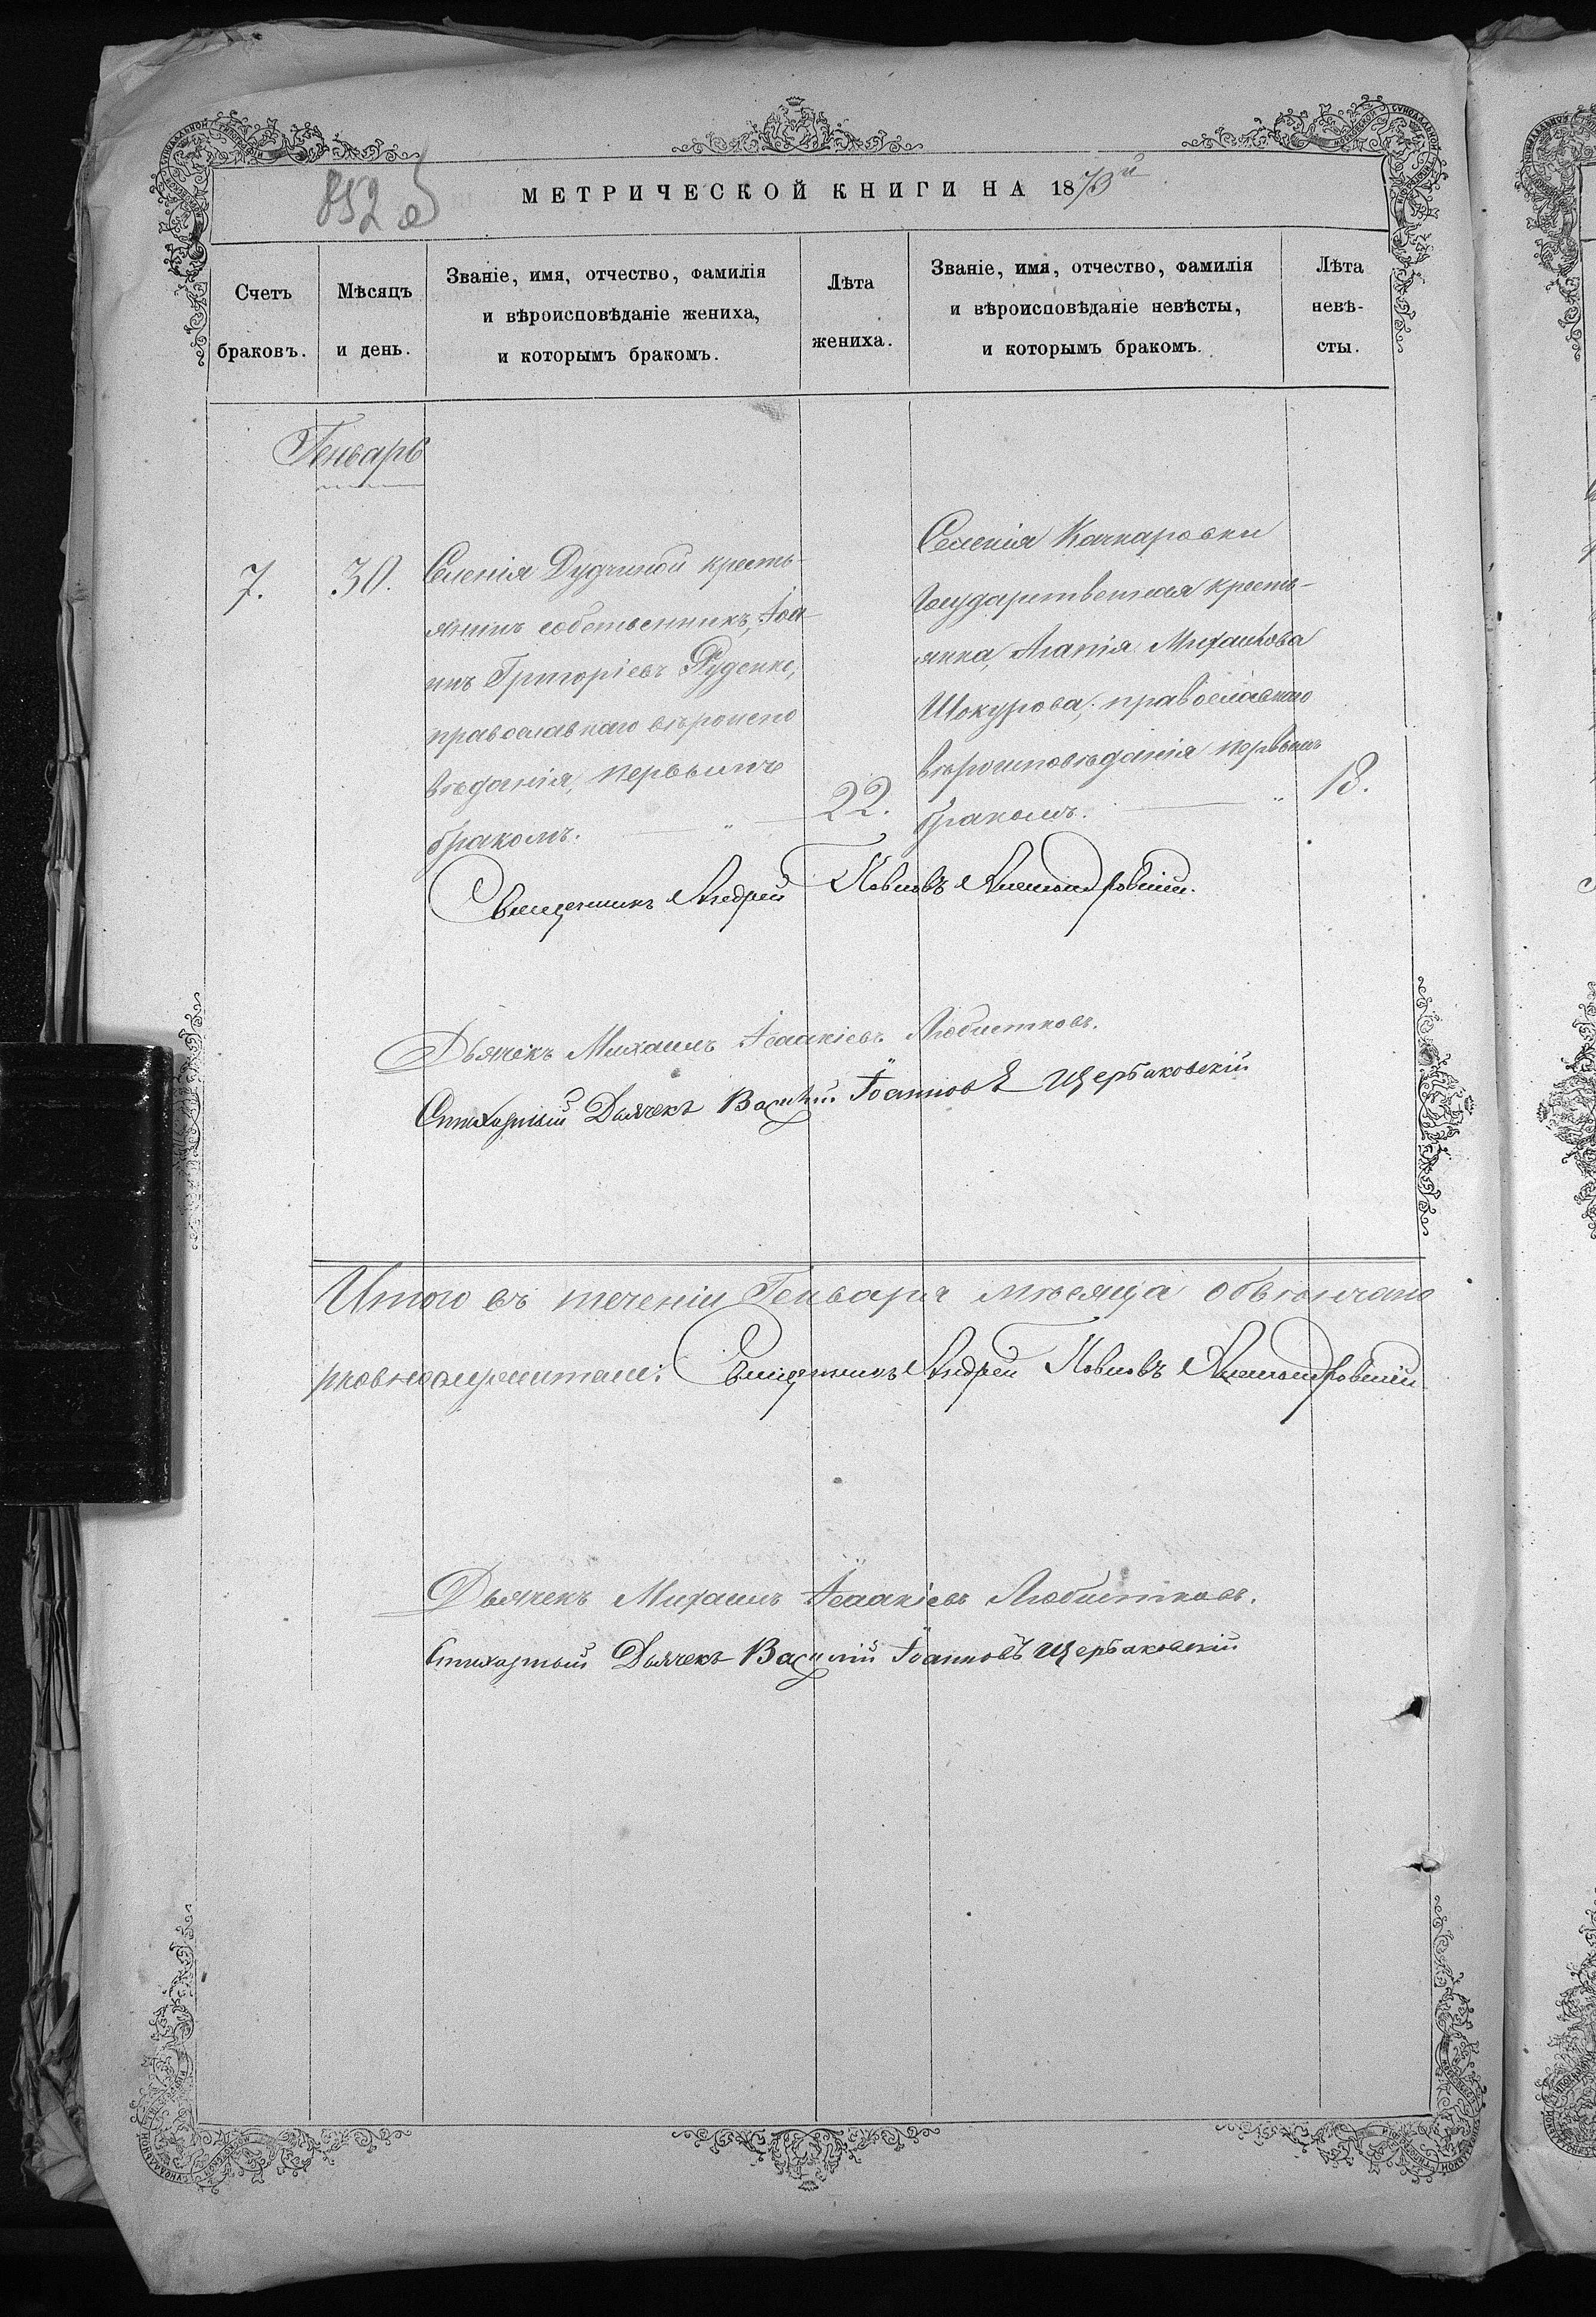 852 об
МЕТРИЧЕСКОЙ КНИГИ НА 1873й
Счетъ браковъ.
Мѣсяцъ и день.
Званіе, имя, отчество, фамилія
и вѣроисповѣданіе жениха,
и которымъ бракомъ.
Лѣта жениха.
Званіе, имя, отчество, фамилія
и вѣроисповѣданіе невѣсты,
и которымъ бракомъ.
Лѣта невѣ-
сты.
Генварь
7.
30.
Селенія Дудчиной кресть-
янинъ собственникъ, Іоа
ннъ Григоріевъ Руденко,
православнаго вѣроиспо
вѣданія, первымъ
бракомъ.
22.
Селенія Качкаровки
Государственная кресть-
янка, Агапія Михаилова
Шокурова, православнаго
вѣроисповѣданія первымъ
бракомъ.
18.
Священникъ Андрей
Дьячекъ Михаилъ Ісаакіевъ Любистковъ.
Стихарный Дьячекъ Василій Іоанновъ Щербаковскій
Итого въ теченіи Генваря мѣсяца обвѣнчано
Священникъ Андрей
Дьячекъ Михаилъ Ісаакіевъ Любистковъ.
Стихарный Дьячекъ Василій Іоанновъ Щербаковскій